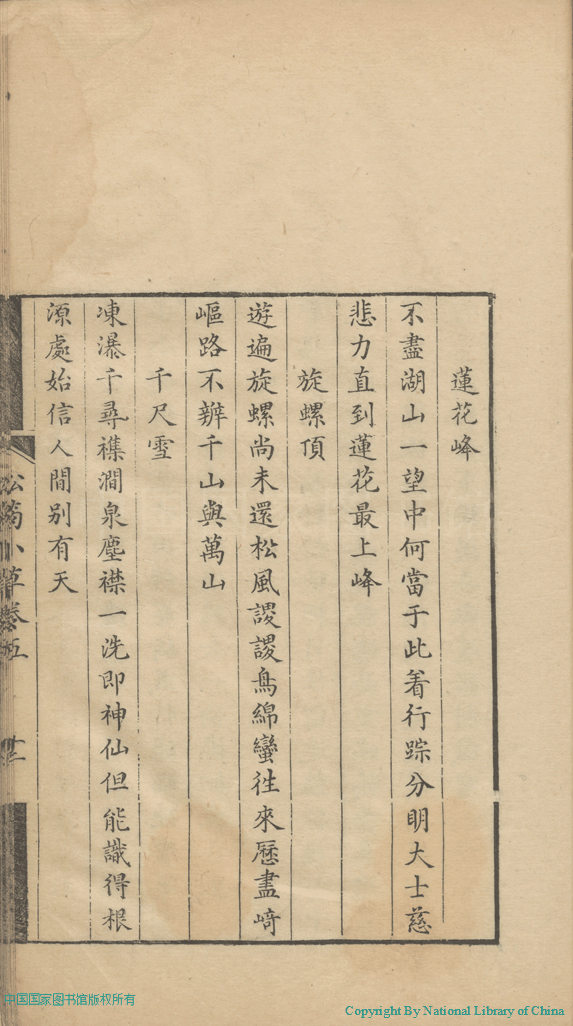 蓮花峰
不盡湖山一望中何當于此着行踪分明大士慈
悲力直到蓮花最上峰
旋螺頂
遊遍旋螺尚未還松風謖謖鳥綿蠻徃來歷盡崎
嶇路不辨千山與萬山
千尺雪
凍瀑千尋襍澗泉塵襟一洗即神仙但能識得根
源處始信人間别有天
小草卷五
中国国家图书馆版权所有
Copyright By National Library of China